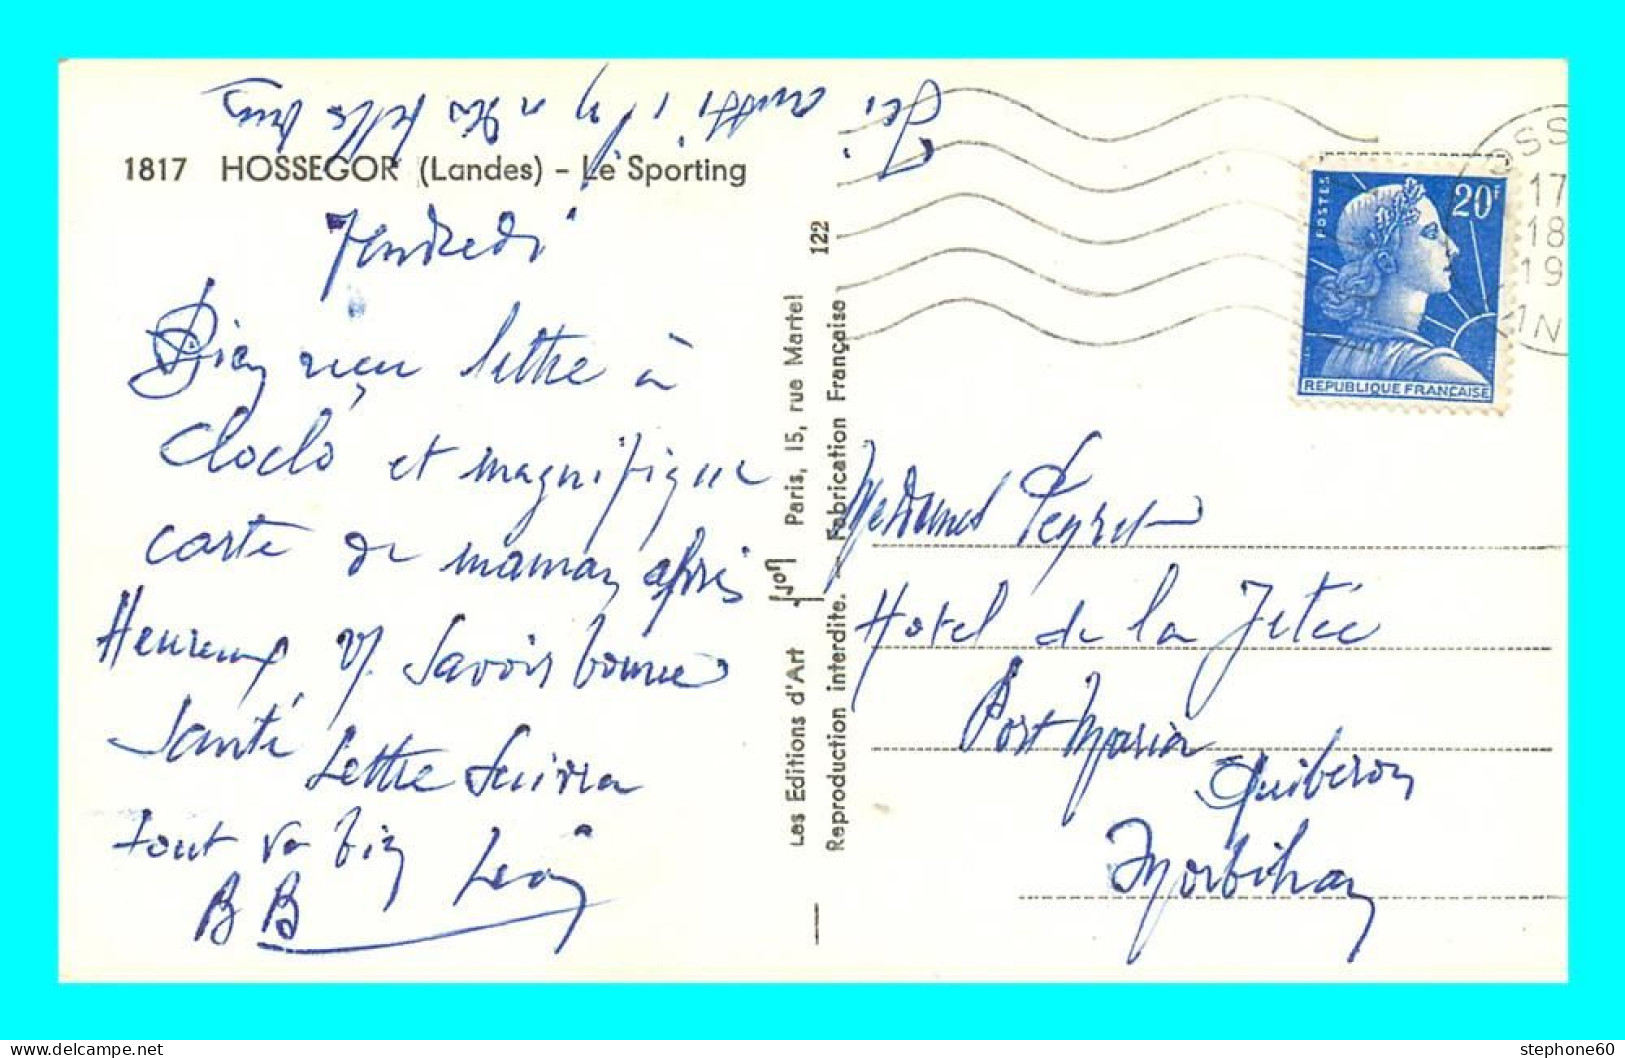 1817 HOSSEGOR (Landes) - Le Sporting
Vendredi
Bien reçu lettre à
Cloclo et magnifique
carte de maman après
Heureux v/ savoir bonne
santé
Lettre suivra
tout va bien Léon
B B
Ici aussi il y a de belles
Les Editions d'Art Yvon Paris, 15, rue Martel
Reproduction interdite. - Fabrication Française
122
17
18
19
POSTES
20F
REPUBLIQUE FRANÇAISE
Mesdames Peyret
Hotel de la Jetée
Port Maria
Quiberon
Morbihan
stephone60